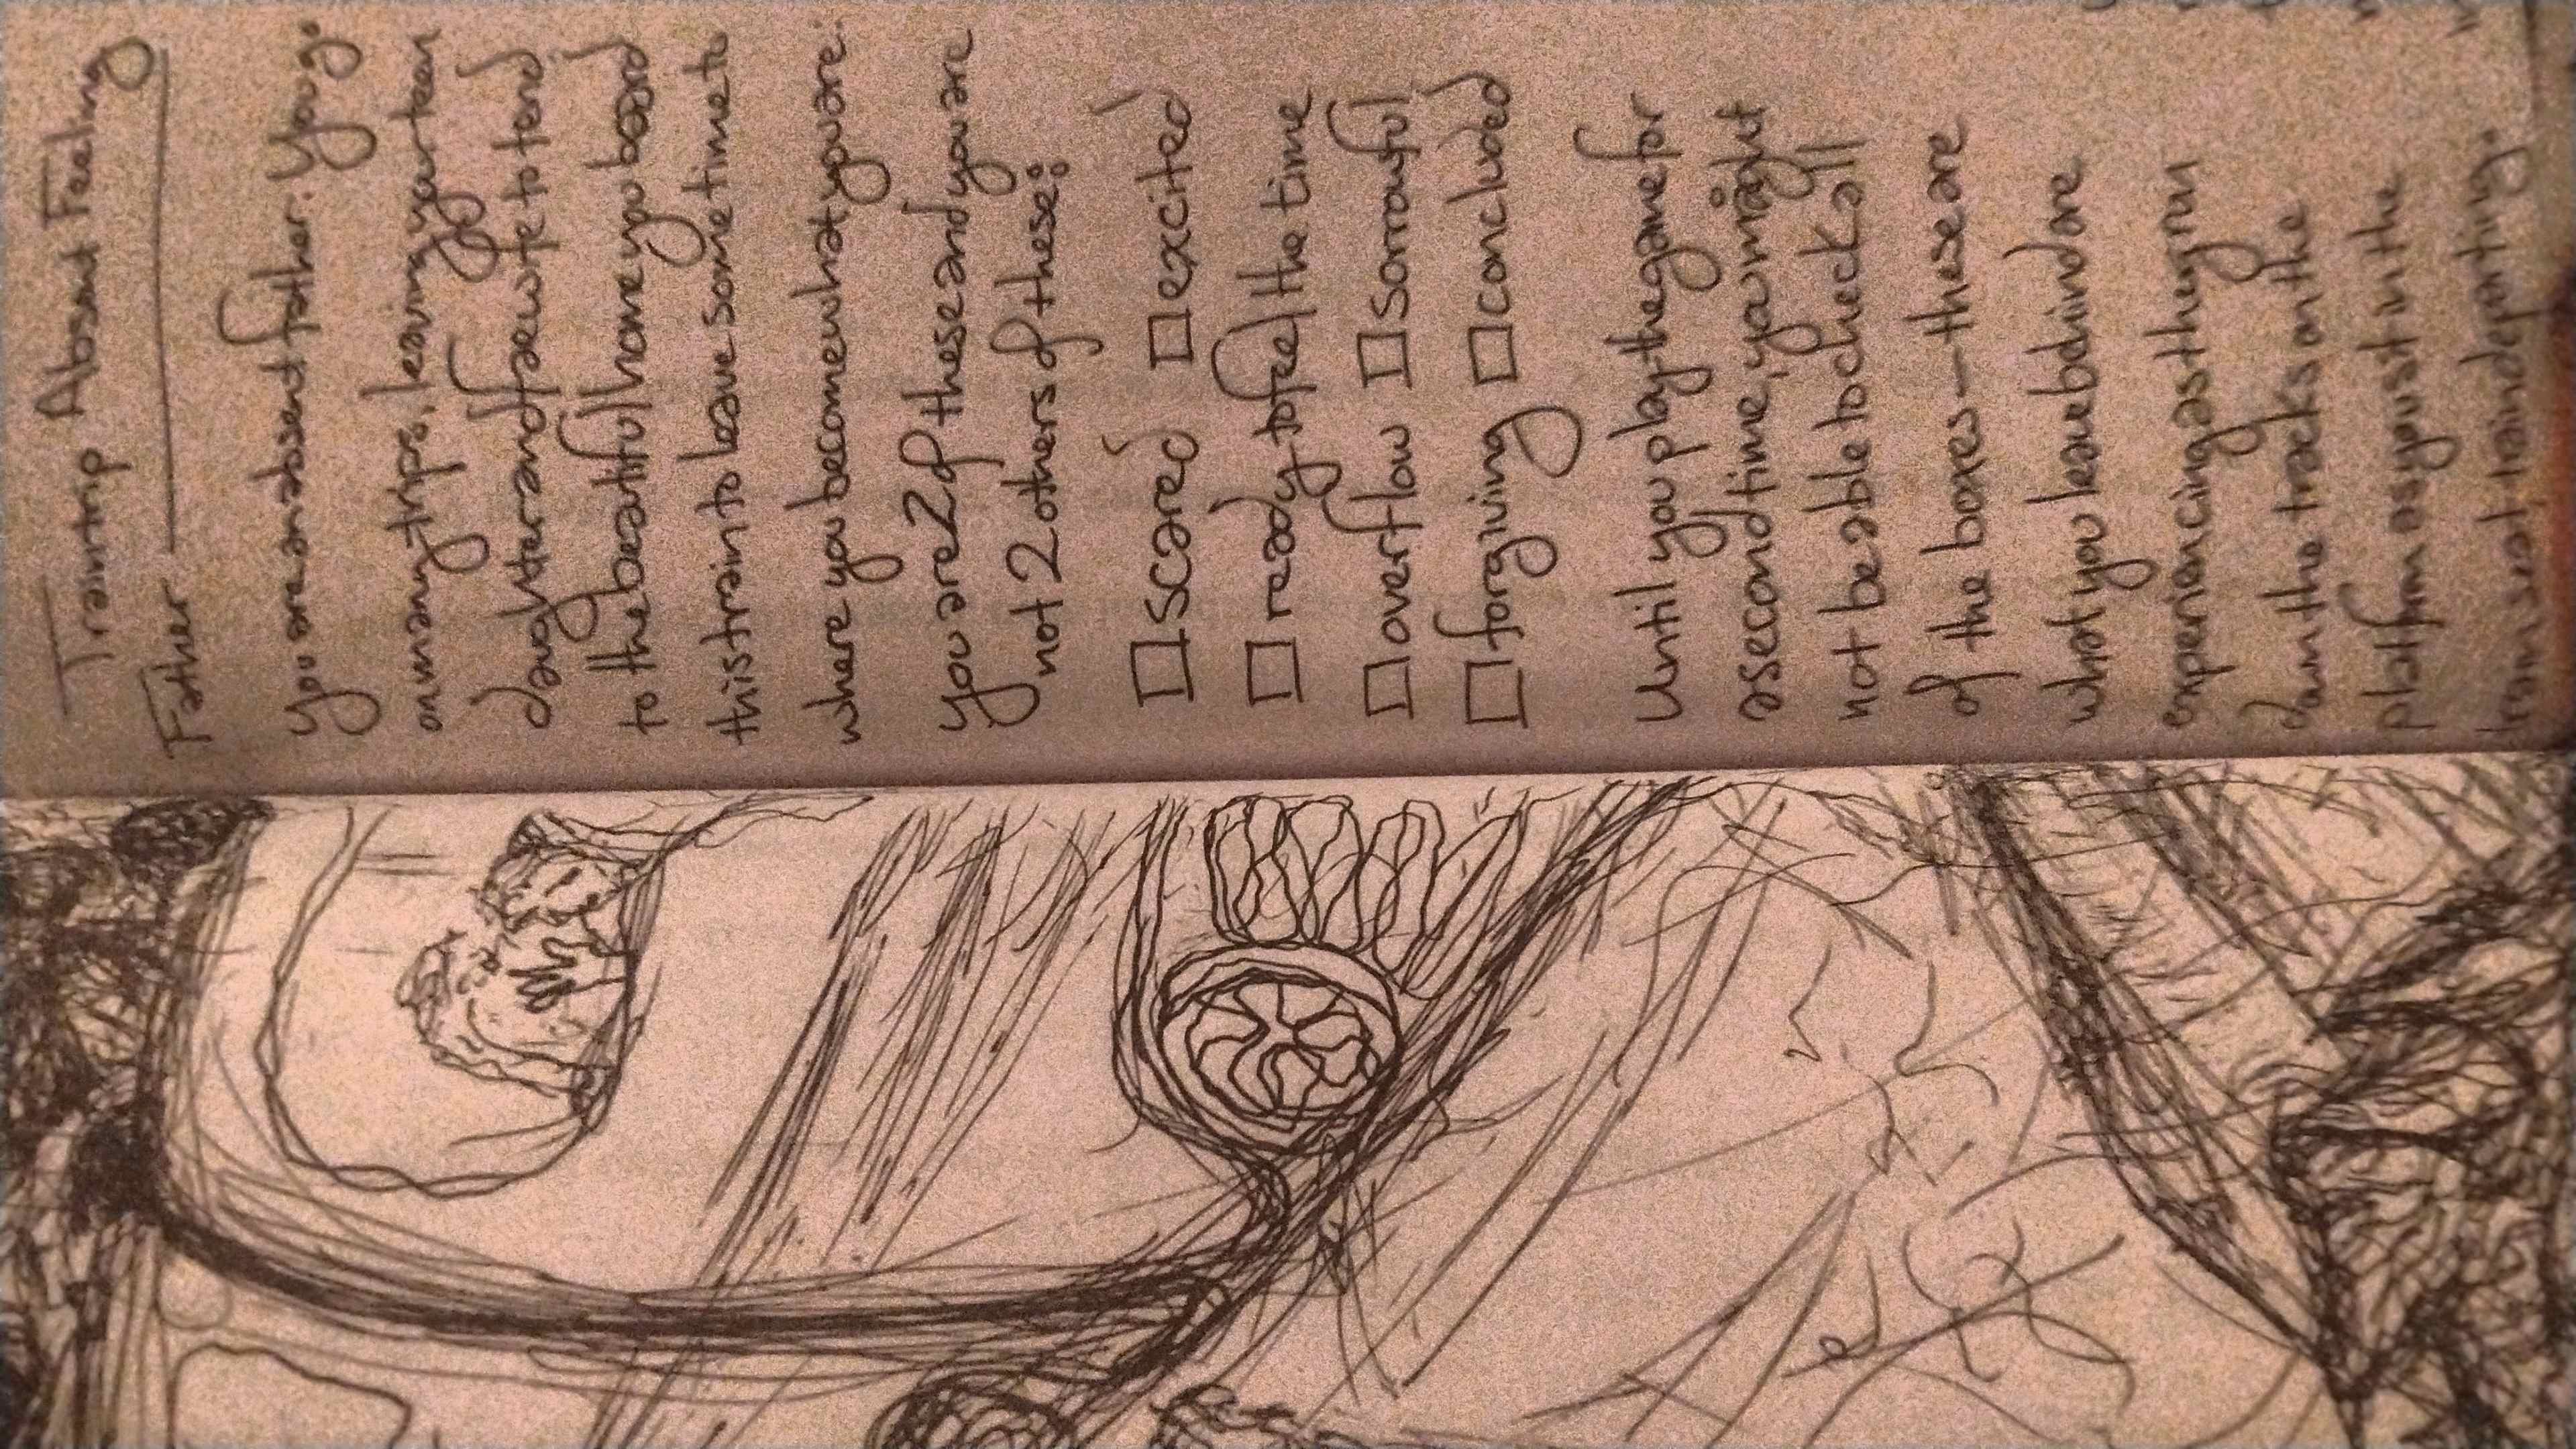 Traintrip Absent Feeling
Father
You are an absent father. You go
on many trips, leaving your teen
daughter and few wife to tend
to the beautiful home you board
this train to leave some time to
where you become what you are.
you are 2 of these and you are
not 2 others of these:
☐ scared ☐ excited
☐ ready to feel the time
☐ overflow ☐ sorrowful
☐ forgiving ☐ concluded
Until you play the game for
a second time, you might
not be able to check all
of the boxes — these are
what you leave behind are
experiencing as they run
down the tracks on the
platform as you sit in the
train seat train departing.